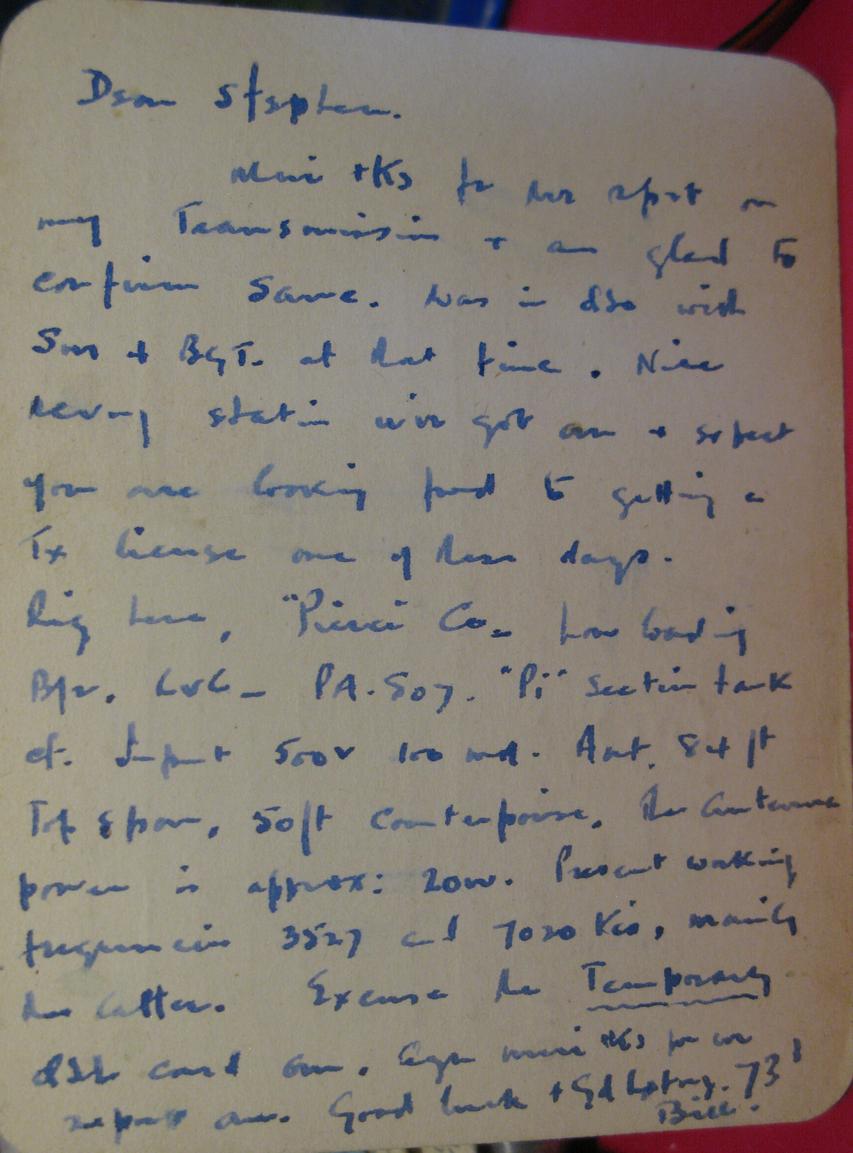 Dear Stephen.
Mni tks for the report on
my Transmission + am glad to
confirm same. Was in QSO with
+ at that time. Nice
station uve got om + expect
you are looking fwd to getting a
Tx license one of these days.
Rig here, "Pierce" Co- loading
PA. 807. "Pi" Section tank
et. Input 500v 100 ma. Ant. 84 ft
Top span, 50ft Counterpoise. The Antenna
power is approx: 20w. Present working
frequencies 3527 and 7020 Kcs, mainly
the latter. Excuse the Temporary
QSL card om. Agn mni tks for ur
report om. Good luck + Gd Lstng. 73's
Bill.